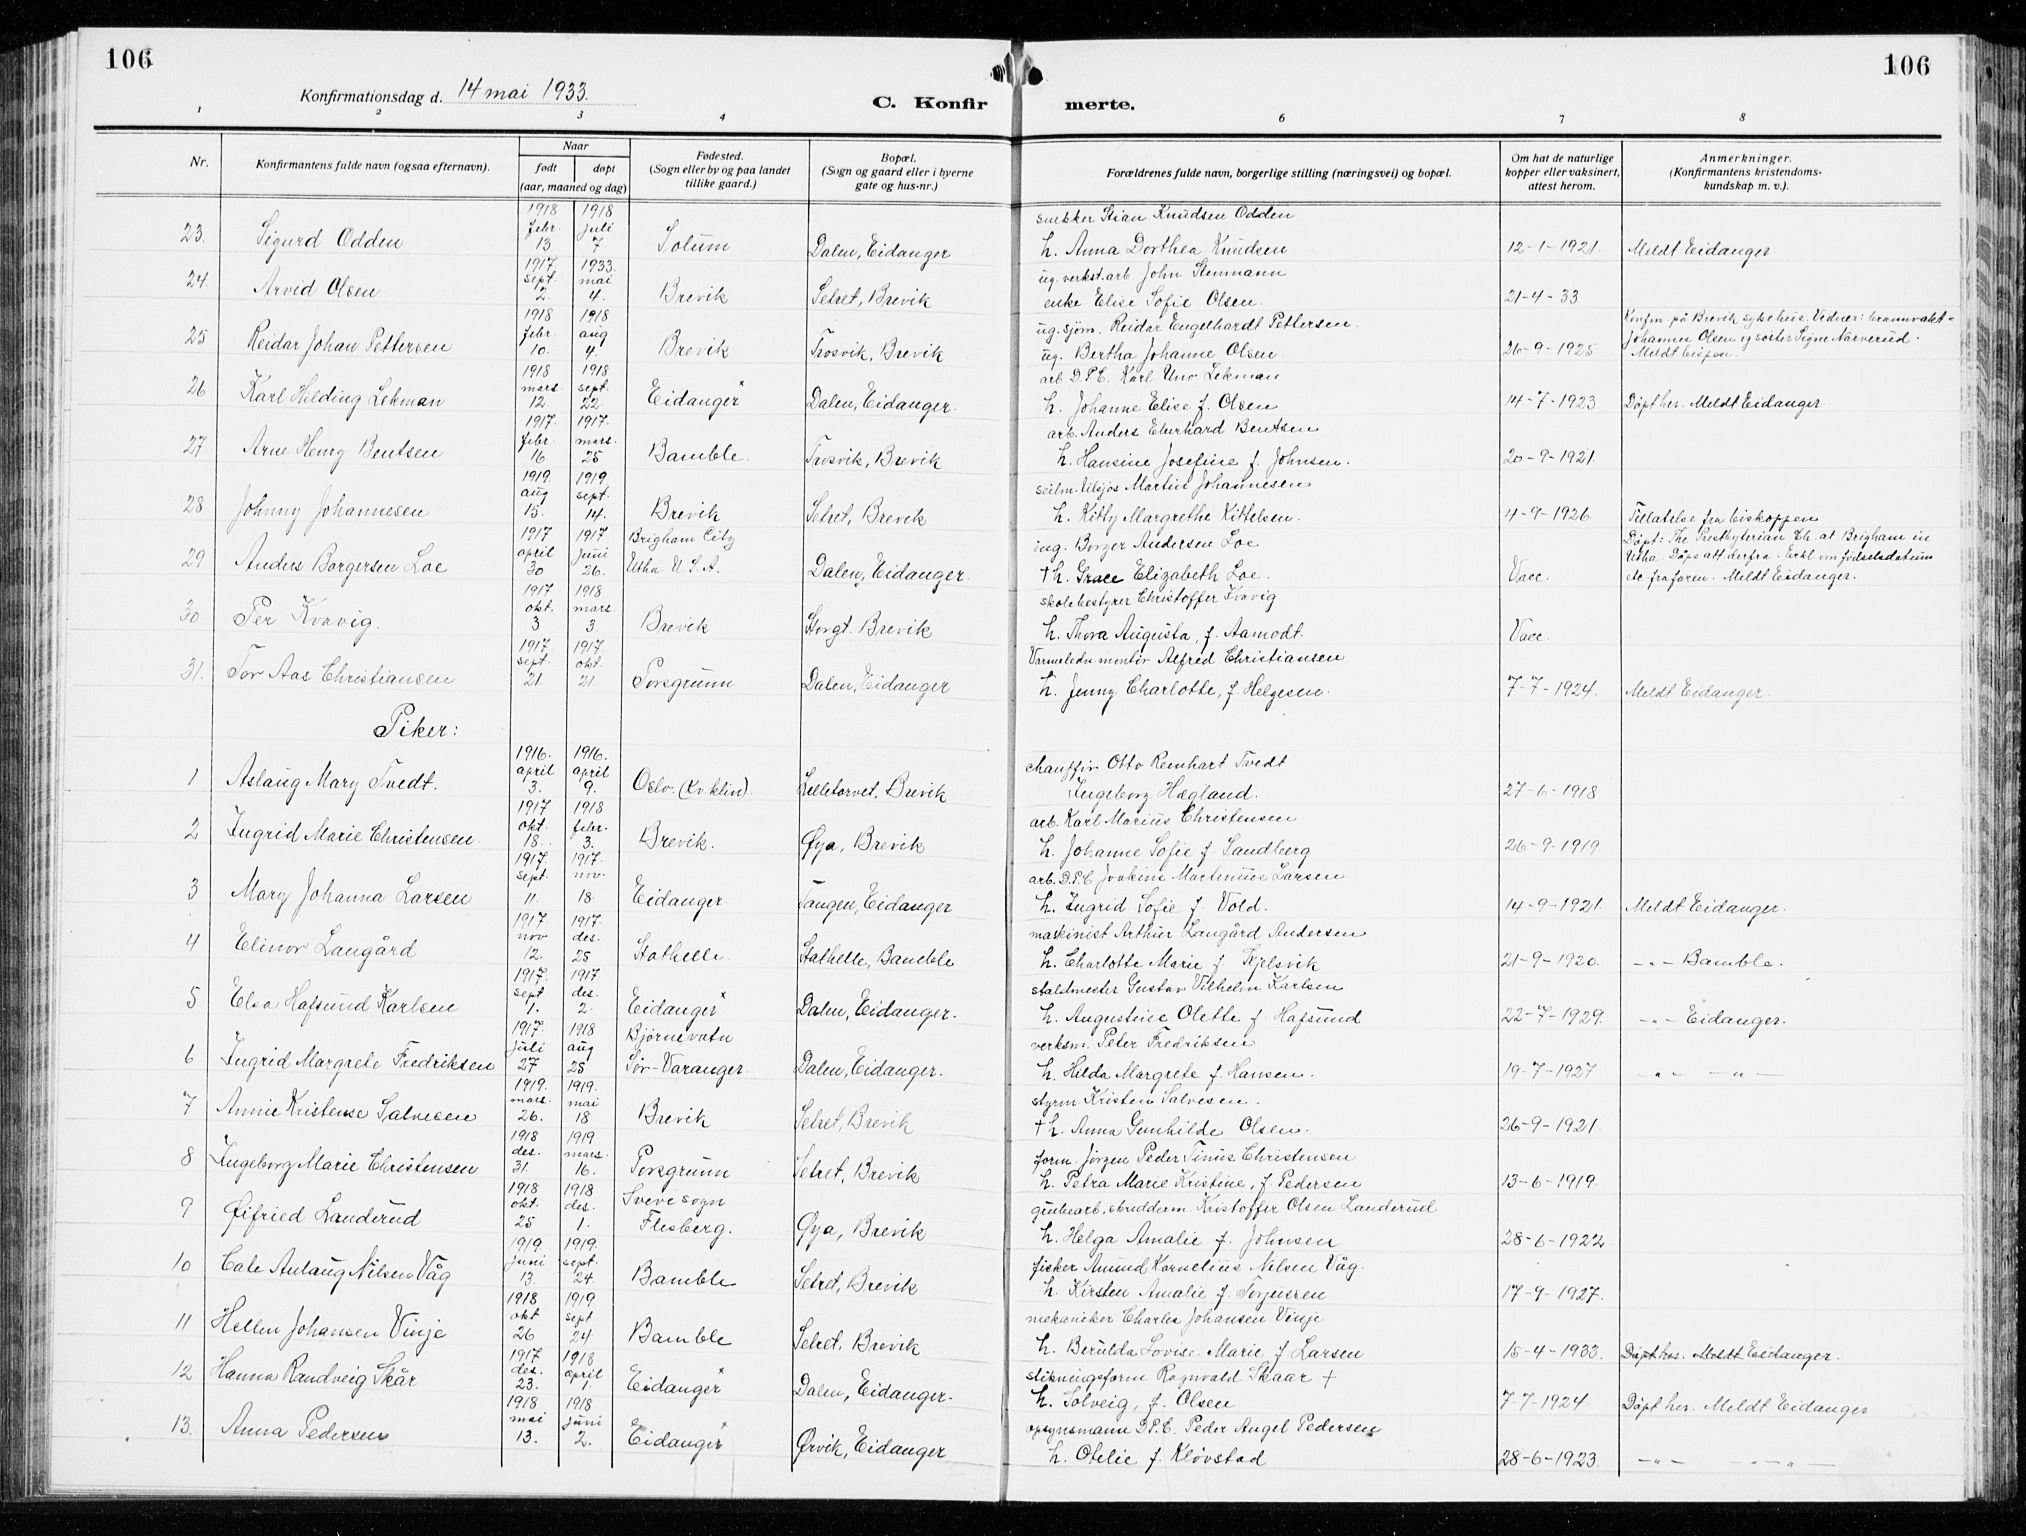 106
106
Konfirmationsdag d. 14 mai 1933.
C. Konfir
merte.
1 2 3 4 6 7 8
Nr.
Konfirmantens fulde navn (ogsaa efternavn).
Naar
født døpt
(aar, maaned og dag)
Fødested.
(Sogn eller by og paa landet
tillike gaard.)
Bopæl.
(Sogn og gaard eller i byerne
gate og hus-nr.)
Forældrenes fulde navn, borgerlige stilling (næringsvei) og bopæl.
Om hat de naturlige
kopper eller vaksinert,
attest herom.
Anmerkninger.
(Konfirmantens kristendoms-
kundskap m. v.).
1918 1918 snekker Stian Knudsen Odden
febr. juli
23. Sigurd Odden 13 7 Solum Dalen, Eidanger h. Anna Dorthea Knudsen 12-1-1921 Meldt Eidanger
1917. 1933. ug. verkst. arb John Stenmann
sept. mai
24. Arvid Olsen 2. 4. Brevik Setret, Brevik enke Elise Sofie Olsen. 21-4-33
1918 1918 ug. sjøm. Reidar Engelhardt Pettersen. Konfm på Brevik sykehus. Vidner: brannvakt-
febr. aug Johannes Olsen og søster Signe Narverud.
25 Reidar Johan Pettersen 10. 4. Brevik Trosvik, Brevik ug. Bertha Johanne Olsen 26-9-1925 Meldt bispen.
1918 1918 arb D.P.C. Karl Uno Lekman
mars. sept.
26 Karl Hilding Lekman 12. 22. Eidanger x Dalen, Eidanger. h. Johanne Elise f. Olsen 14-7-1923 Døpt her. Meldt Eidanger
1917. 1917. arb. Anders Eberhard Bentsen
febr. mars.
27 Arne Henry Bentsen 16. 25 Bamble. Trosvik, Brevik h. Hansine Josefine f. Johnsen. 20-9-1921.
1919. 1919. seilm. tilsjøs Martin Johannesen
aug sept.
28 Johnny Johannesen 15. 14. Brevik Setret, Brevik h. Kitty Margrethe Kittelsen. 4-9-1926. Tillatelse fra biskoppen
1917 1917 Brigham City ing. Borger Andersen Loe Døpt: The Presbyterian Ch. at Brigham in
april juni Utha. Døpsatt derfra. Erkl om fødselsdatum
29 Anders Borgersen Loe 30 26. Utha. U.S.A. Dalen, Eidanger. †h. Grace Elizabeth Loe. Vacc. etc fra faren. Meldt Eidanger.
1917 1918 skolebestyrer Christoffer Kvavig
okt. mars.
30 Per Kvavig. 3 3. Brevik Storgt. Brevik h. Thora Augusta, f. Aamodt. Vacc.
1917. 1917. Varmeledn. montør Alfred Christiansen
sept. okt.
31. Tor Aas Christiansen 21. 21. Porsgrunn Dalen, Eidanger h. Jenny Charlotte, f. Helgesen. 7-7-1924. Meldt Eidanger.
Piker:
1916. 1916. chauffør Otto Reinhart Tvedt
april april
1 Aslaug Mary Tvedt. 3. 9. Oslo. (Kv. klin). Lilletorvet, Brevik Ingeborg Hægland. 27-6-1918
1917 1918 arb. Karl Marius Christensen
okt. febr.
2 Ingrid Marie Christensen. 18. 3. Brevik. Øya, Brevik h. Johanne Sofie f. Sandberg 26-9-1919
1917 1917. arb. D.P.C Joakim Martinius Larsen
sept. nov.
3 Mary Johanna Larsen 11. 18. Eidanger Tangen, Eidanger h. Ingrid Sofie f. Vold. 14-9-1921 Meldt Eidanger.
1917 1917 maskinist Arthur Langård Andersen
nov des.
4 Elinor Langård 12. 25 Stathelle. Stathelle, Bamble h. Charlotte Marie f. Kjelsvik 21-9-1920. -"- Bamble.
1917. 1917 staldmester Gustav Vilhelm Karlsen
sept des.
5 Elsa Hafsund Karlsen 1. 2. Eidanger x Dalen, Eidanger. h. Augustine Olette f. Hafsund 22-7-1929. -"- Eidanger.
1917. 1918 Bjørnevatn verksm. Peter Fredriksen
juli aug
6 Ingrid Margrete Fredriksen 27 25 Sør-Varanger. Dalen, Eidanger. h. Hilda Margrete f. Hansen. 19-7-1927 -"- -"-
1919. 1919. styrm Kristen Salvesen.
mars. mai
7 Annie Kristense Salvesen 26. 18 Brevik Setret, Brevik †h. Anna Gunhilde Olsen. 26-9-1921.
1918 1919 form. Jørgen Peder Tinus Christensen
des. mars.
8 Ingeborg Marie Christensen 31. 16. Porsgrunn Setret, Brevik h. Petra Marie Kristine, f. Pedersen 13-6-1919.
1918 1918 Svene sogn grubearb. skredderm. Kristoffer Olsen Landerud
okt. des.
9 Øifried Landerud 25 1. Flesberg. Øya, Brevik h. Helga Amalie f. Johnsen 28-6-1922.
1919. 1919. fisker Amund Kornelius Nilsen Våg.
juni sept.
10 Cate Aulaug Nilsen Våg 13. 24. Bamble Setret, Brevik h. Kirsten Amalie f. Torjussen 17-9-1927.
1918 1919 mekaniker Charles Johansen Vinje
okt sept
11 Hellen Johansen Vinje 26 24 Bamble Setret, Brevik h. Berulda Lovise Marie f Larsen 15-4-1933. Døpt her. Meldt Eidanger.
1917 1918 stikningsform Ragnvald Skaar †
des. april
12 Hanna Randveig Skår 23. 1. Eidanger x Dalen, Eidanger. h. Solveig, f. Olsen 7-7-1924 Døpt her. Meldt Eidanger
1918 1918 opsynsmann D.P.C. Peder Angel Pedersen
mai juni
13. Anna Pedersen 13. 2. Eidanger x Ørvik, Eidanger h. Otelie f. Kløvstad 28-6-1923. -"- -"-"-